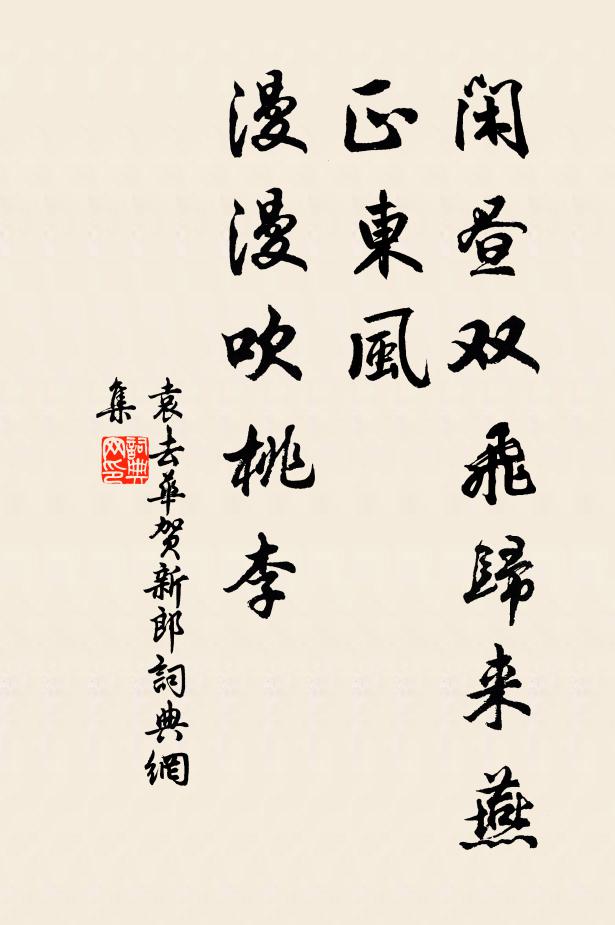 闲昼双飞歸来燕
正東風
漫漫吹桃李
袁去華賀新郎詞典網
集
詞典
网印